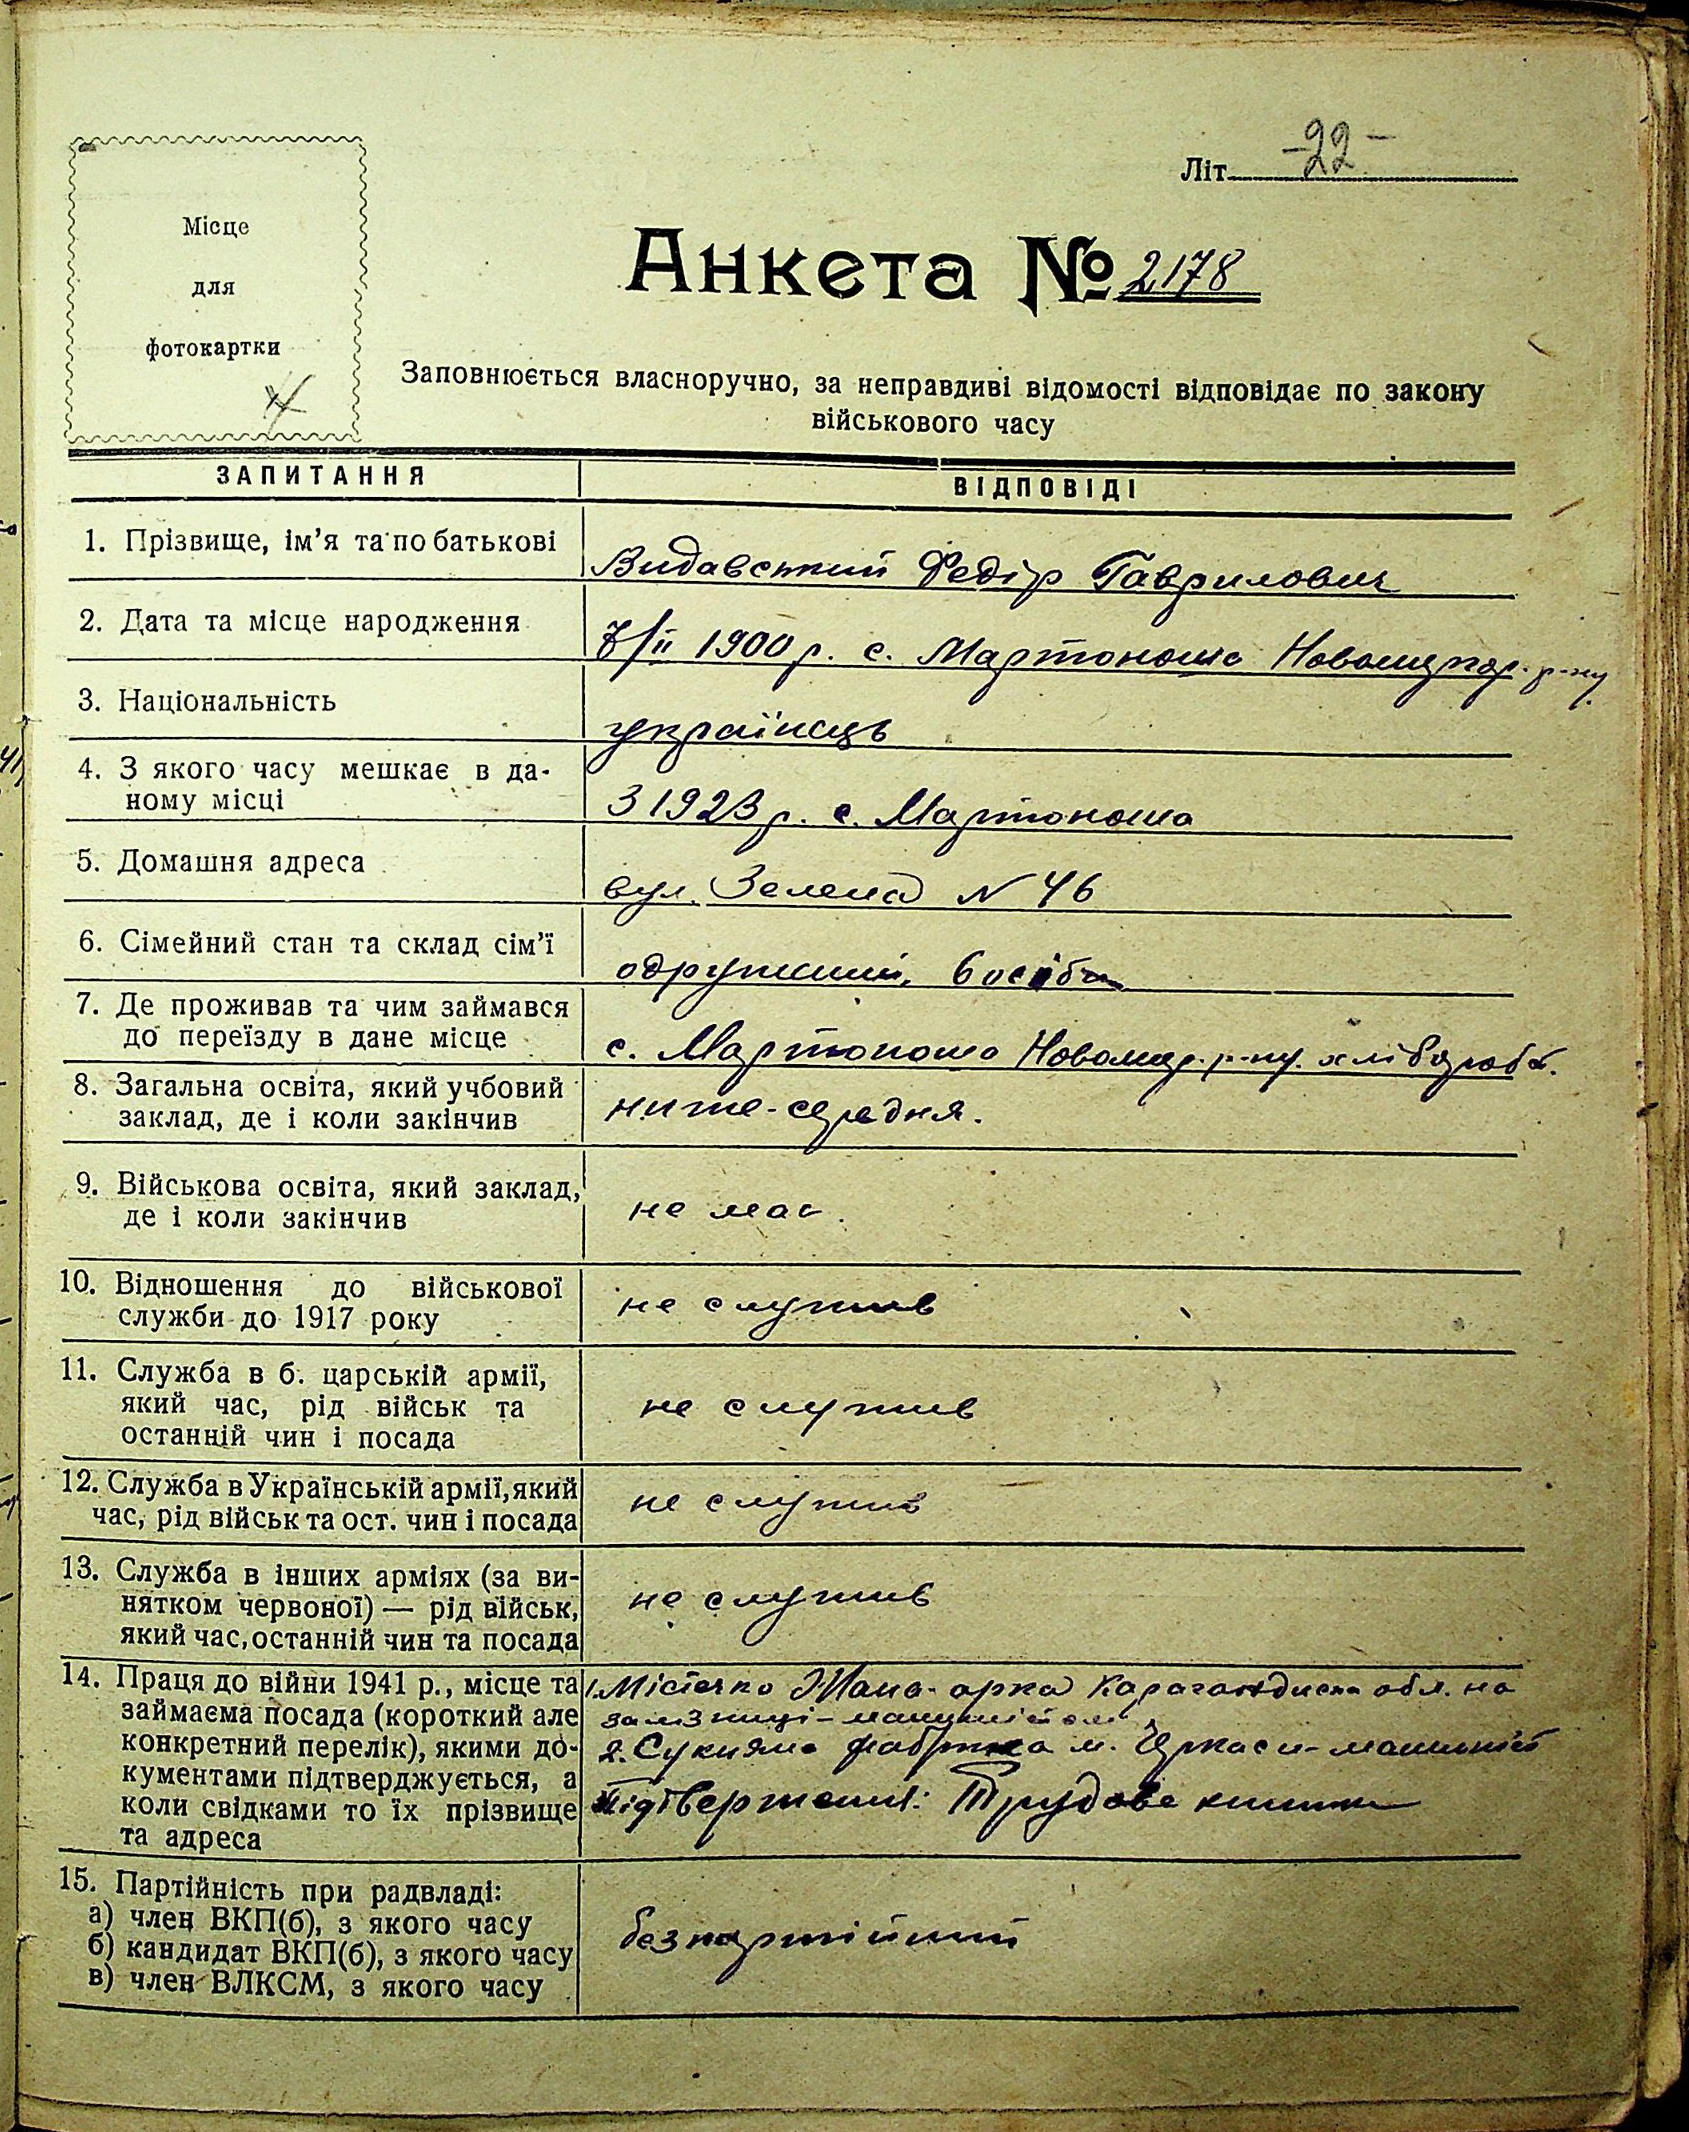 Літ. -22-
Місце
для
фотокартки
Анкета № 2178
Заповнюється власноручно, за неправдиві відомості відповідає по закону
військового часу
ЗАПИТАННЯ
ВІДПОВІДІ
1. Прізвище, ім'я та по батькові
Видавський Федір Гаврилович
2. Дата та місце народження
7/II 1900 р. с. Мартоноша Новомиргор. р-ну
3. Національність
українець
4. З якого часу мешкає в да-
ному місці
З 1923 р. с. Мартоноша
5. Домашня адреса
вул. Зелена N 46
6. Сімейний стан та склад сім'ї
одружений, 6 осіб
7. Де проживав та чим займався
до переїзду в дане місце
с. Мартоноша Новомир. р-ну. хлібороб.
8. Загальна освіта, який учбовий
заклад, де і коли закінчив
ниже-середня.
9. Військова освіта, який заклад,
де і коли закінчив
не має.
10. Відношення до військової
служби до 1917 року
не служив
11. Служба в б. царській армії,
який час, рід військ та
останній чин і посада
не служив
12. Служба в Українській армії, який
час, рід військ та ост. чин і посада
не служив
13. Служба в інших арміях (за ви-
нятком червоної) — рід військ,
який час, останній чин та посада
не служив
14. Праця до війни 1941 р., місце та
займаєма посада (короткий але
конкретний перелік), якими до-
кументами підтверджується, а
коли свідками то їх прізвище
та адреса
1. Містечко Жана-арка Карагандиска обл. на
залізниці - машиністом
2. Сукняна фабрика м. Черкаси - машиніст
Підтвержені: Трудова книжка
15. Партійність при радвладі:
а) член ВКП(б), з якого часу
б) кандидат ВКП(б), з якого часу
в) член ВЛКСМ, з якого часу
безпартійний